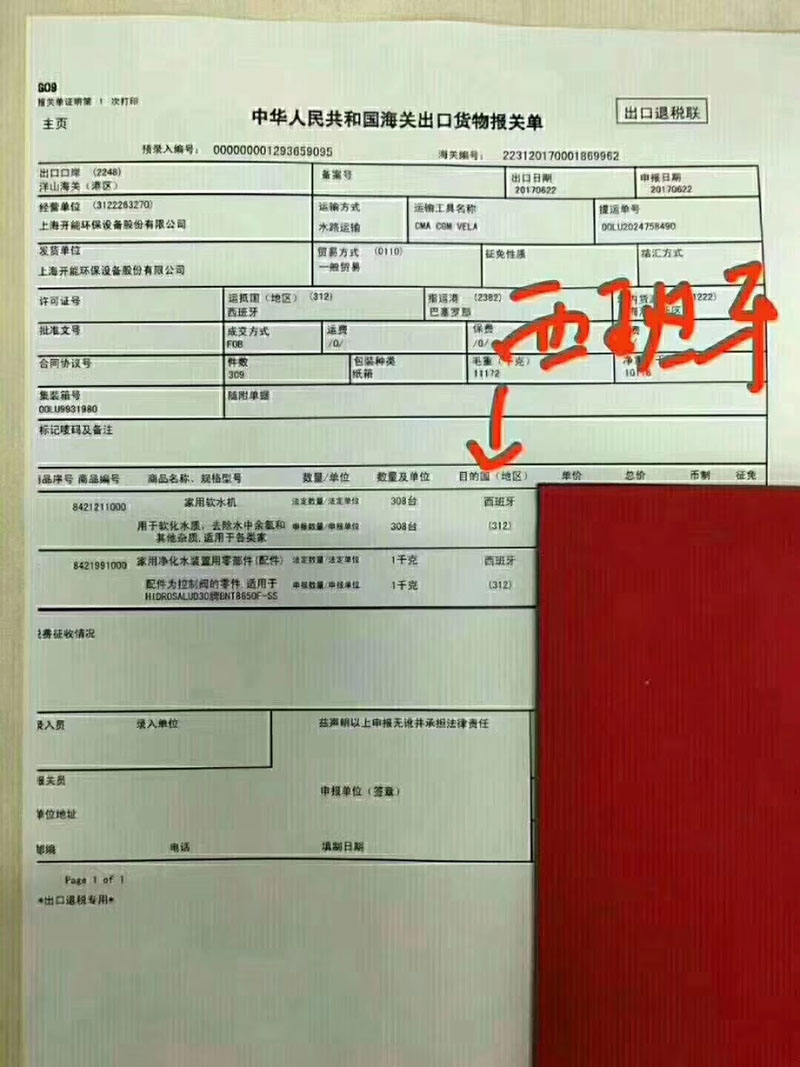 G09
报关单证明第 1 次打印
主页
中华人民共和国海关出口货物报关单
出口退税联
预录入编号： 000000001293659095
海关编号： 223120170001869962
出口口岸 (2248)
洋山海关（港区）
备案号
出口日期
20170622
申报日期
20170622
经营单位 (3122263270)
上海开能环保设备股份有限公司
运输方式
水路运输
运输工具名称
CMA CGM VELA
提运单号
OOLU2024758490
发货单位
上海开能环保设备股份有限公司
贸易方式 (0110)
一般贸易
征免性质
结汇方式
许可证号
运抵国（地区）(312)
西班牙
指运港 (2382)
巴塞罗那
1222)
西班牙
批准文号
成交方式
FOB
运费
/0/
保费
/0/
合同协议号
件数
309
包装种类
纸箱
毛重（千克）
11172
集装箱号
OOLU9931980
随附单据
标记唛码及备注
商品序号 商品编号 商品名称、规格型号 数量/单位 数量及单位 目的国（地区） 单价 总价 币制 征免
8421211000 家用软水机 法定数量/法定单位 308台 西班牙
用于软化水质，去除水中余氯和 申报数量/申报单位 308台 (312)
其他杂质,适用于各类家
8421991000 家用净化水装置用零部件(配件) 法定数量/法定单位 1千克 西班牙
配件为控制阀的零件,适用于 申报数量/申报单位 1千克 (312)
HIDROSALUD30牌BNT8650F-SS
税费征收情况
录入员 录入单位 兹声明以上申报无讹并承担法律责任
报关员
申报单位（签章）
单位地址
邮编 电话 填制日期
Page 1 of 1
*出口退税专用*